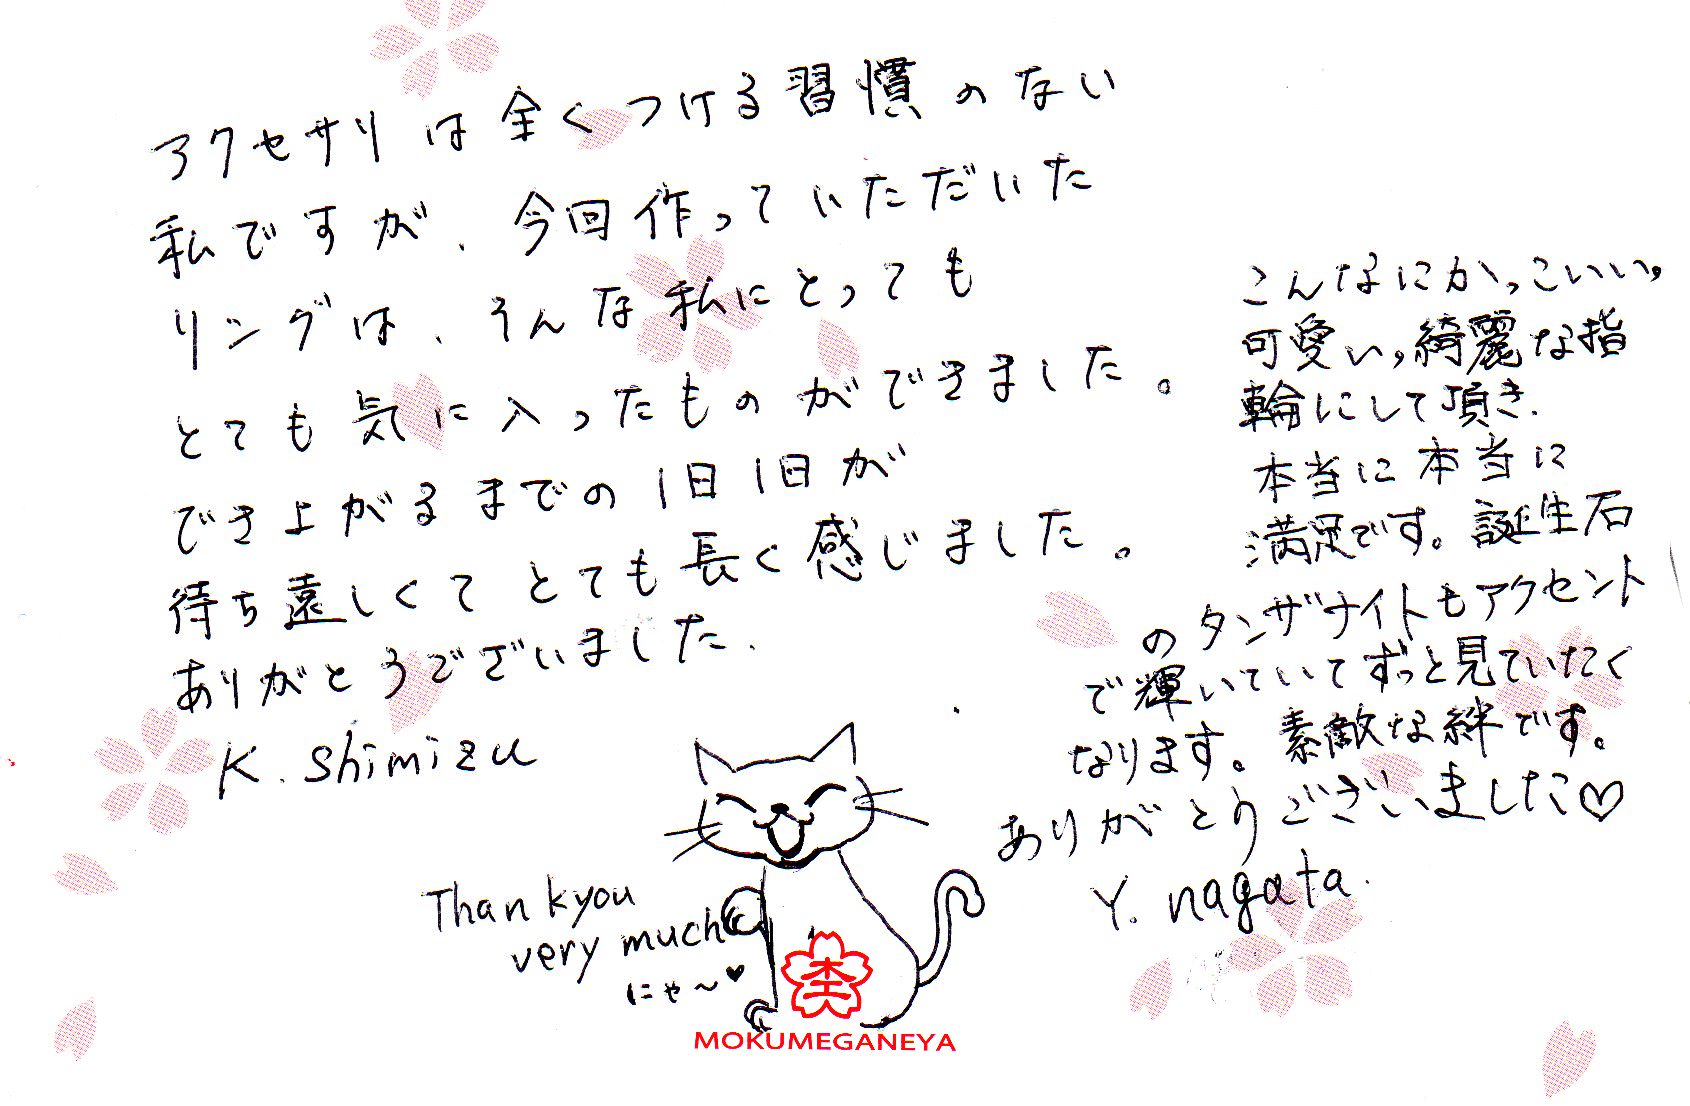 アクセサリは全くつける習慣のない
私ですが、今回作っていただいた
リングは、そんな私にとっても
とても気に入ったものができました。
でき上がるまでの1日1日が
待ち遠しくてとても長く感じました。
ありがとうございました.
K. Shimizu
こんなにかっこいい,
可愛い,綺麗な指
輪にして頂き、
本当に本当に
満足です。誕生石
のタンザナイトもアクセント
で輝いていてずっと見ていたく
なります。素敵な絆です。
ありがとうございました♡
Y. nagata.
Thankyou
very much
にゃ～♥
木
MOKUMEGANEYA